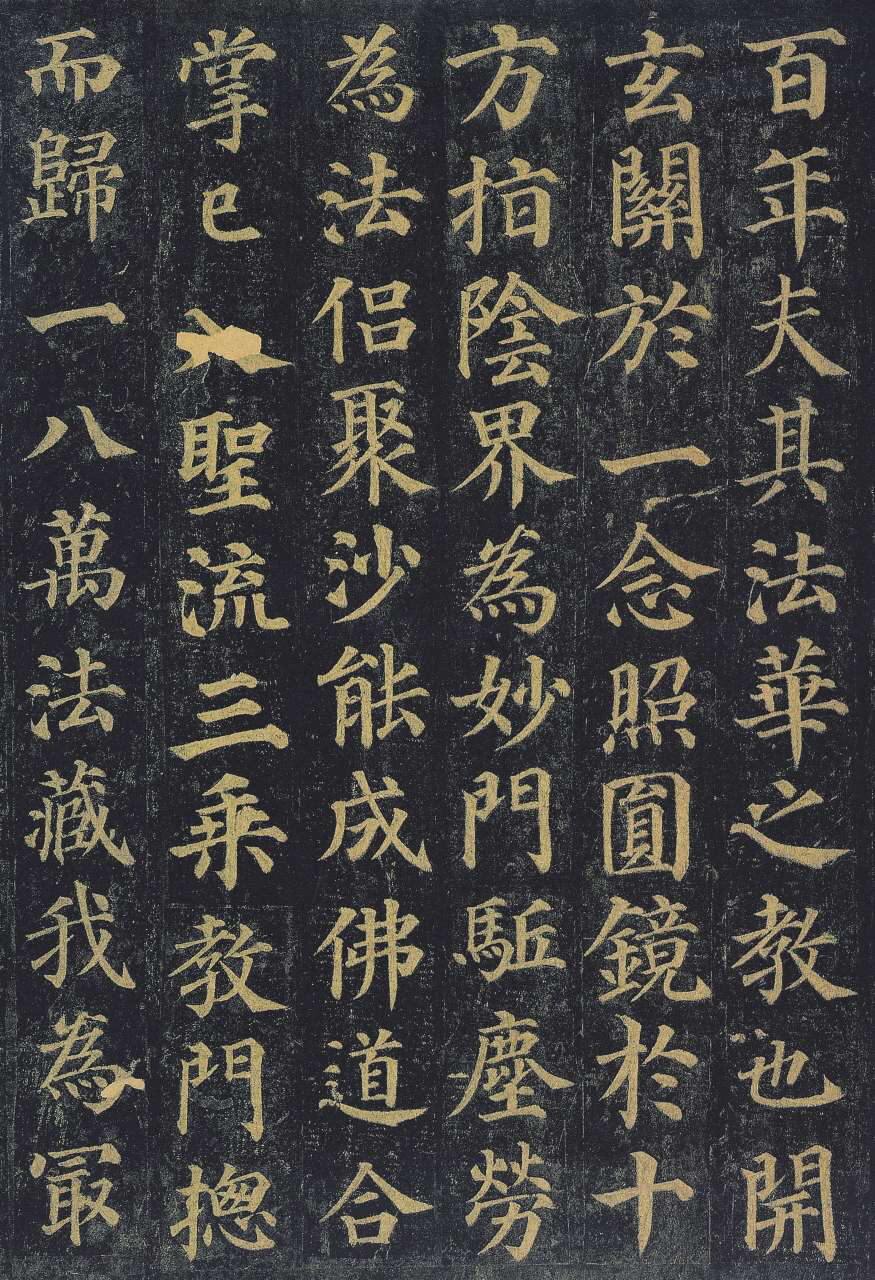 百年夫其法華之教也開
玄關於一念照圓鏡於十
方指陰界為妙門駈塵勞
為法侶聚沙能成佛道合
掌已入聖流三乗教門揔
而歸一八萬法藏我為冣